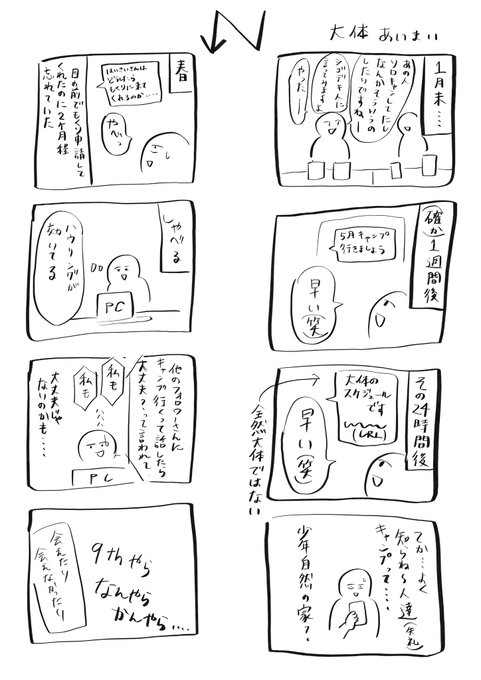 大体 あいまい
1月末…
あの人
ソロキャンしてたし
なんかそういうの
したいですね〜
シゴデキ人に
言っときますよ
やったー
(確か)1週間後
5月キャンプ
行きましょう
早い(笑)
その24時間後
大体の
スケジュール
です
(URL)
早い(笑)
全然大体ではない
てか…よく
知らね〜人達(失礼)
キャンプって….
少年自然の家?
春
はいさいさんは
どれくらい
しくりに来て
くれるのか….
やべっ
目の前でもくり申請して
くれたのに2ヶ月程
忘れていた
しゃべる
ハウリングが
効いてる
PC
他のフォロワーさんに
キャンプ行くって話したら
大丈夫?って言われて
私も
私も
大丈夫じゃ
ないのかも….
PC
9thやら
なんやら
かんやら….
会えたり
会えなかったり